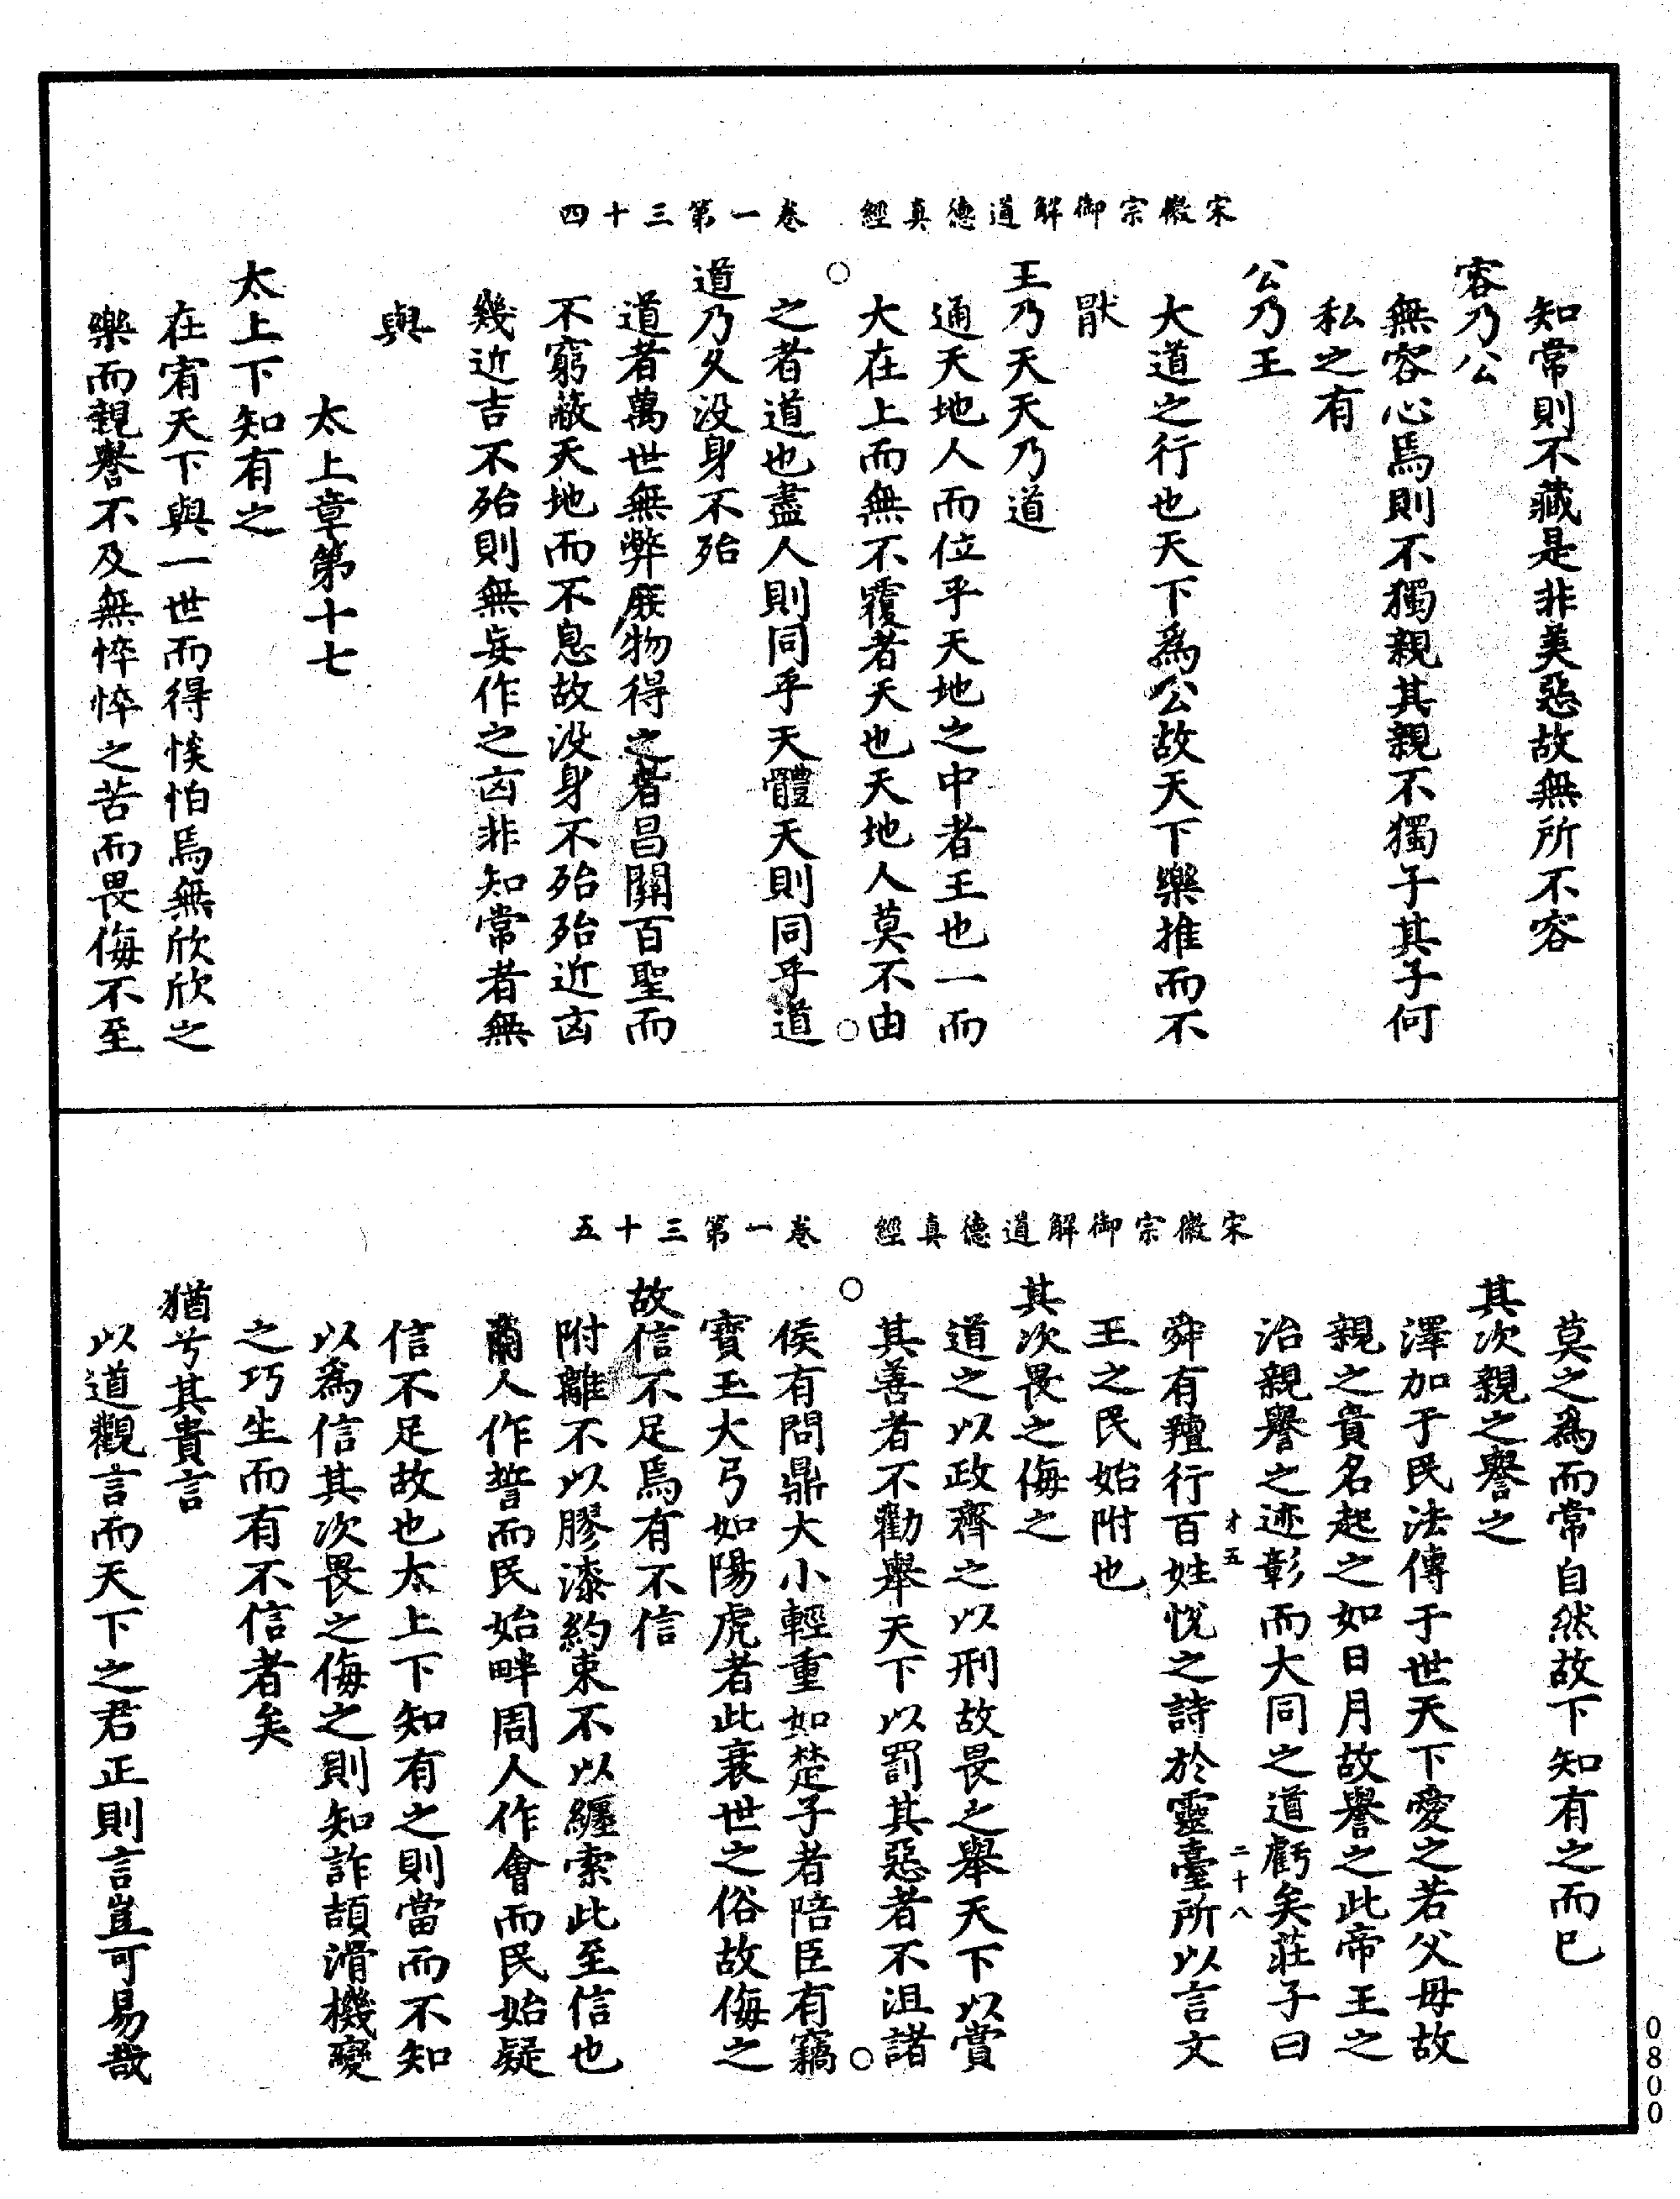 宋徽宗御解道德真經　卷一第三十四
知常則不藏是非美惡故無所不容
容乃公
無容心焉則不獨親其親不獨子其子何
私之有
公乃王
大道之行也天下為公故天下樂推而不
猒
王乃天天乃道
通天地人而位乎天地之中者王也一而
大在上而無不覆者天也天地人莫不由
之者道也盡人則同乎天體天則同乎道
道乃久没身不殆
道者萬世無弊庶物得之者昌關百聖而
不窮蔽天地而不息故没身不殆殆近凶
幾近吉不殆則無妄作之凶非知常者無
與
太上章第十七
太上下知有之
在宥天下與一世而得惔怕焉無欣欣之
樂而親譽不及無悴悴之苦而畏侮不至
宋徽宗御解道德真經　卷一第三十五
莫之為而常自然故下知有之而已
其次親之譽之
澤加于民法傳于世天下愛之若父母故
親之貴名起之如日月故譽之此帝王之
治親譽之迹彰而大同之道虧矣莊子曰
才五　二十八
舜有羶行百姓悅之詩於靈臺所以言文
王之民始附也
其次畏之侮之
道之以政齊之以刑故畏之舉天下以賞
其善者不勸舉天下以罰其惡者不沮諸
侯有問鼎大小輕重如楚子者陪臣有竊
寶玉大弓如陽虎者此衰世之俗故侮之
故信不足焉有不信
附離不以膠漆約束不以纆索此至信也
商人作誓而民始畔周人作會而民始疑
信不足故也太上下知有之則當而不知
以為信其次畏之侮之則知詐頡滑機變
之巧生而有不信者矣
猶兮其貴言
以道觀言而天下之君正則言豈可易哉
0800